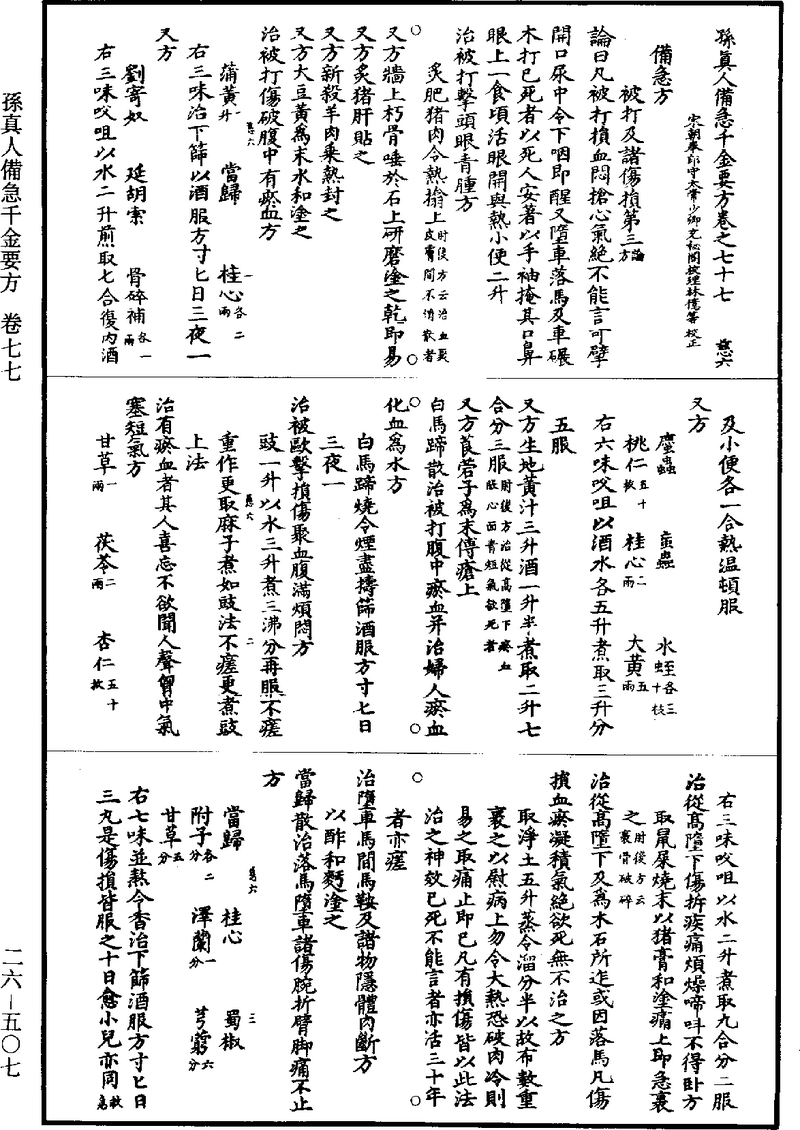 孫真人備急千金要方　卷七七
二六－五〇七
孫真人備急千金要方卷之七十七　慈六
宋朝奉郎守太常少卿充秘閣校理林億等校正
備急方
被打及諸傷損第三論方
論曰凡被打損血悶搶心氣絕不能言可擘
開口尿中令下咽即醒又墮車落馬及車碾
木打已死者以死人安著以手袖掩其口鼻
眼上一食頃活眼開與熱小便二升
治被打擊頭眼青腫方
炙肥猪肉令熱搨上肘後方云治血聚皮膚間不消散者
又方牆上朽骨唾於石上研磨塗之乾即易
又方炙猪肝貼之
又方新殺羊肉乘熱封之
又方大豆黃為末水和塗之
治被打傷破腹中有瘀血方
蒲黃一升　當歸　桂心各二兩
慈六　一
右三味治下篩以酒服方寸匕日三夜一
又方
劉寄奴　延胡索　骨碎補各一兩
右三味㕮咀以水二升煎取七合復內酒
及小便各一合熱溫頓服
又方
䗪蟲　䖟蟲　水蛭各三十枚
桃仁五十枚　桂心二兩　大黃五兩
右六味㕮咀以酒水各五升煮取三升分
五服
又方生地黃汁三升酒一升半煮取二升七
合分三服肘後方治從高墮下瘀血脹心面青短氣欲死者
又方莨菪子為末傅瘡上
白馬蹄散治被打腹中瘀血并治婦人瘀血
化血為水方
白馬蹄燒令煙盡擣篩酒服方寸匕日
三夜一
治被歐擊損傷聚血腹滿煩悶方
豉一升以水三升煮三沸分再服不瘥
慈六　二
重作更取麻子煮如豉法不瘥更煮豉
上法
治有瘀血者其人喜忘不欲聞人聲胷中氣
塞短氣方
甘草一兩　茯苓二兩　杏仁五十枚
右三味㕮咀以水二升煮取九合分二服
治從高墮下傷折疾痛煩燥啼呌不得卧方
取鼠屎燒末以猪膏和塗痛上即急裹
之肘後方云裹骨破碎
治從高墮下及為木石所迮或因落馬凡傷
損血瘀凝積氣絕欲死無不治之方
取淨土五升蒸令溜分半以故布數重
裹之以熨病上勿令大熱恐破肉冷則
易之取痛止即已凡有損傷皆以此法
治之神效已死不能言者亦活三十年
者亦瘥
治墮車馬間馬鞍及諸物隱體肉斷方
以酢和麪塗之
當歸散治落馬墮車諸傷腕折臂脚痛不止
方
慈六　三
當歸　桂心　蜀椒
附子各二分　澤蘭一分　芎藭六分
甘草五分
右七味並熬令香治下篩酒服方寸匕日
三凡是傷損皆服之十日愈小兒亦同救急